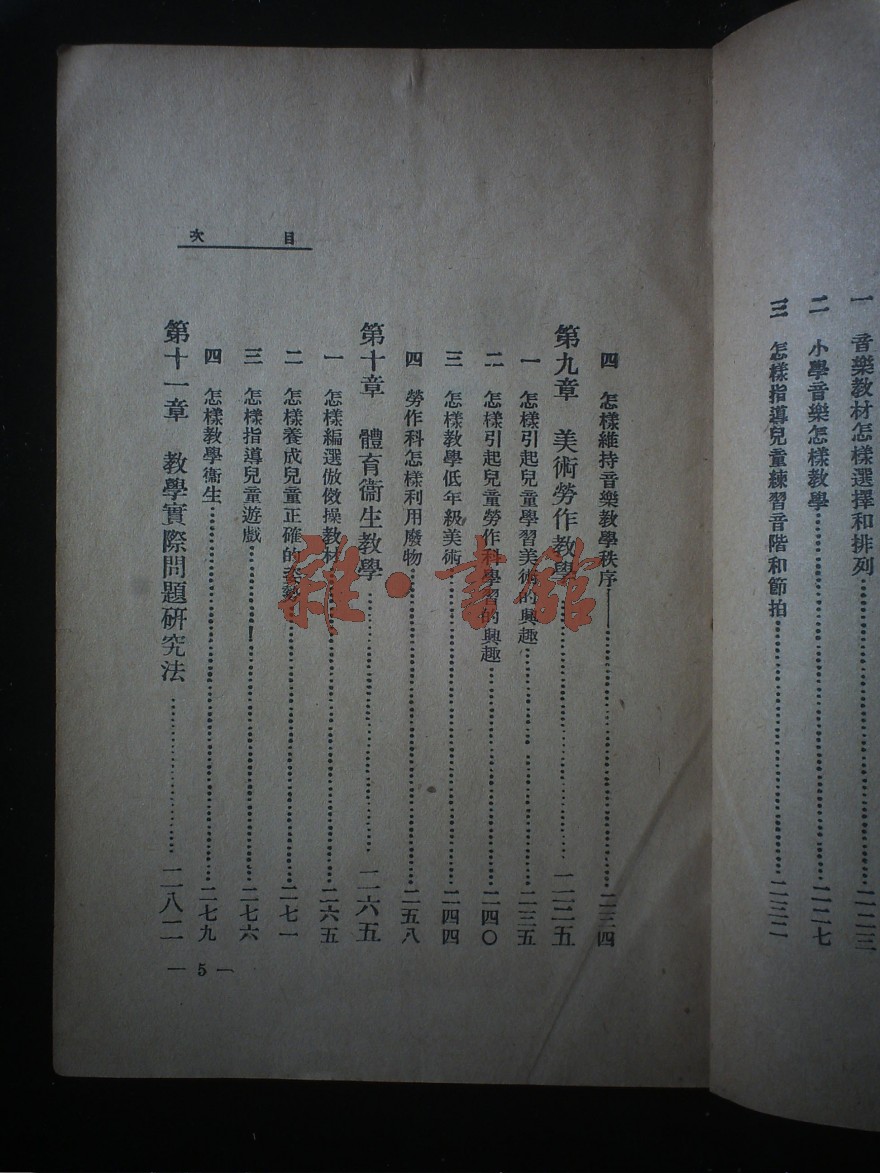 一　音樂教材怎樣選擇和排列…………二二三
二　小學音樂怎樣教學…………二二七
三　怎樣指導兒童練習音階和節拍…………二三二
目次
四　怎樣維持音樂教學秩序…………二三四
第九章　美術勞作教學…………二二五
一　怎樣引起兒童學習美術的興趣…………二三五
二　怎樣引起兒童勞作科學習的興趣…………二四〇
三　怎樣教學低年級美術…………二四四
四　勞作科怎樣利用廢物…………二五八
第十章　體育衞生教學…………二六五
一　怎樣編選倣傚操教材…………二六五
二　怎樣養成兒童正確的姿勢…………二七一
三　怎樣指導兒童遊戲…………二七六
四　怎樣教學衞生…………二七九
第十一章　教學實際問題研究法…………二八二
— 5 —
雜·書館